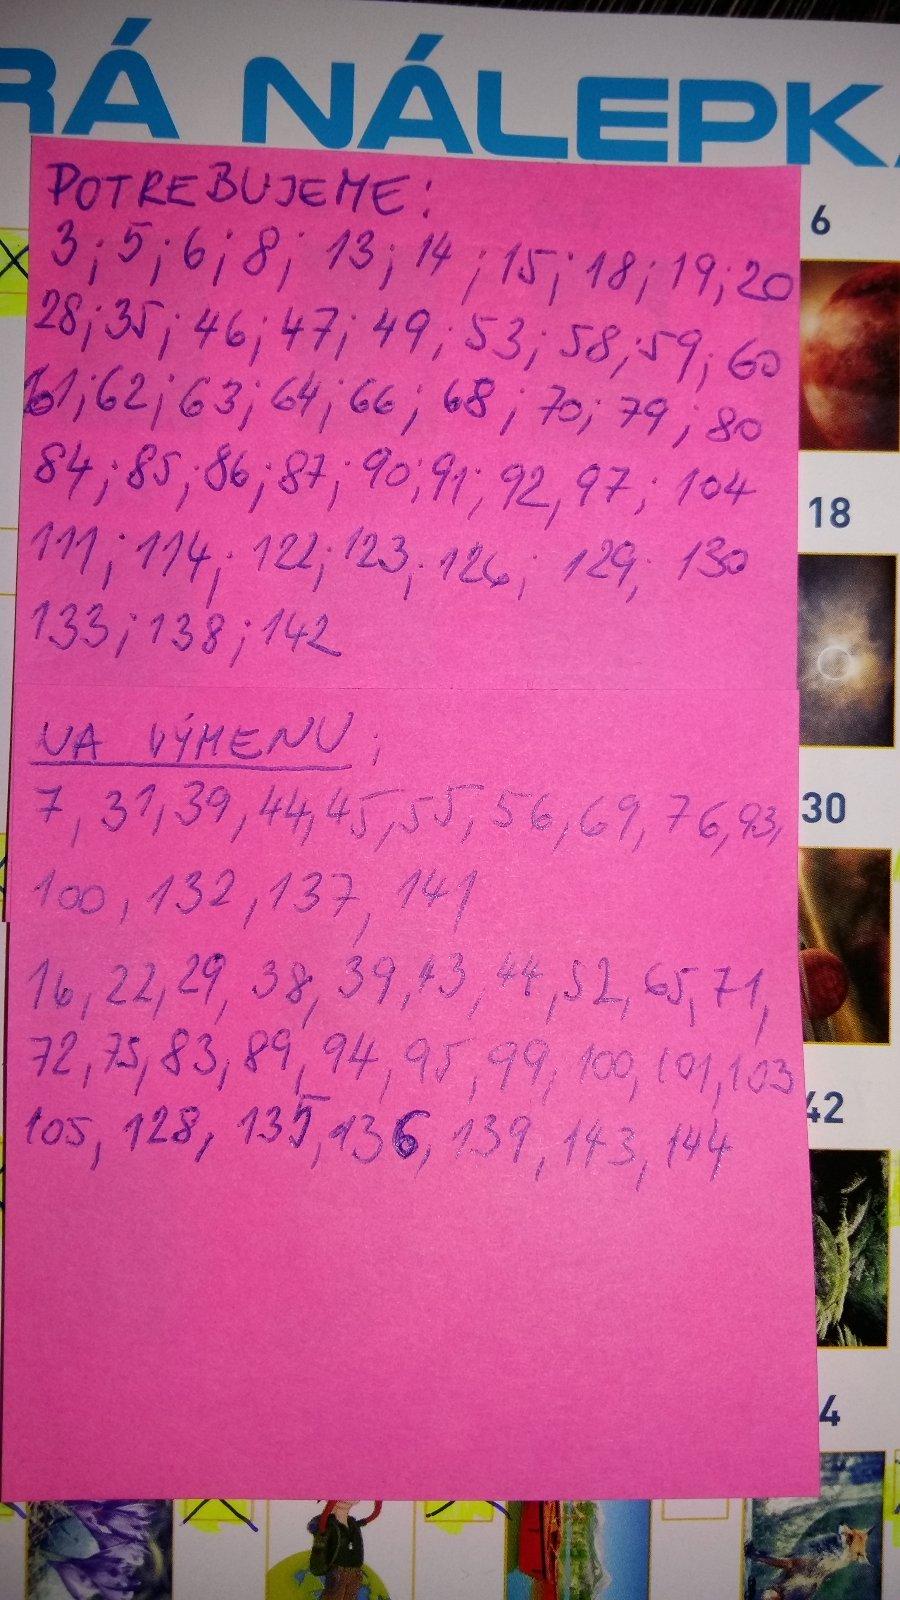 RÁ NÁLEPKA
POTREBUJEME:
3; 5; 6; 8; 13; 14; 15; 18; 19; 20
28; 35; 46; 47; 49; 53; 58; 59; 60
61; 62; 63; 64; 66; 68; 70; 79; 80
84; 85; 86; 87; 90; 91; 92, 97; 104
111; 114; 122; 123; 126; 129; 130
133; 138; 142
NA VÝMENU:
7, 31, 39, 44, 45, 55, 56, 69, 76, 93,
100, 132, 137, 141
16, 22, 29, 38, 39, 43, 44, 52, 65, 71,
72, 75, 83, 89, 94, 95, 99, 100, 101, 103
105, 128, 135, 136, 139, 143, 144
6
18
30
42
4